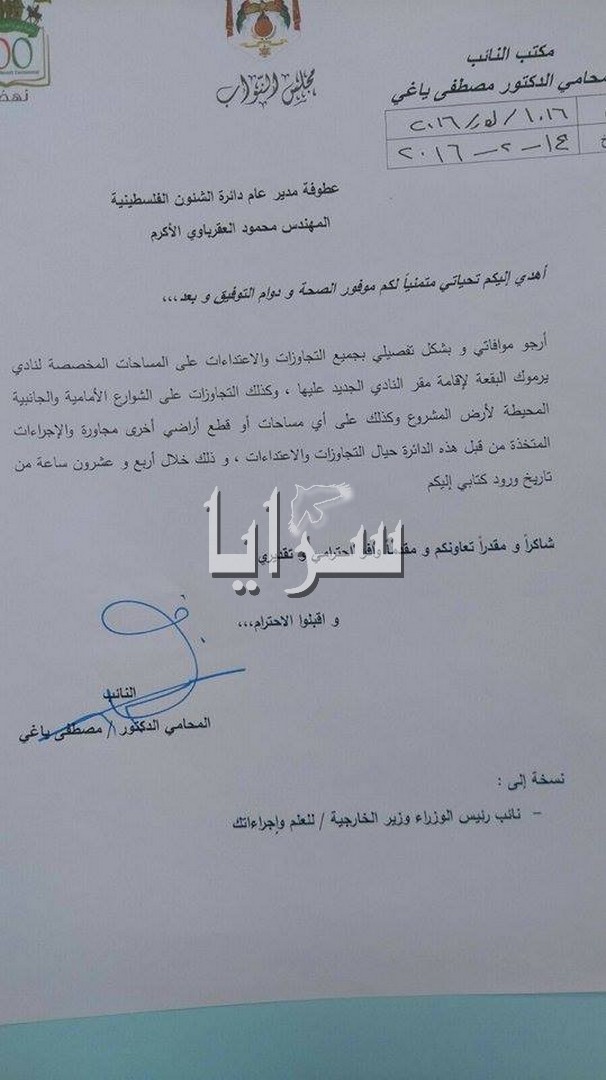 00
نهض
مجلس النواب
مكتب النائب
محامي الدكتور مصطفى ياغي
٢٠١٦/
١٤-٢-٢٠١٦
عطوفة مدير عام دائرة الشئون الفلسطينية
المهندس محمود العقرباوي الأكرم
أهدي إليكم تحياتي متمنياً لكم موفور الصحة و دوام التوفيق و بعد ،،،
أرجو موافاتي و بشكل تفصيلي بجميع التجاوزات والاعتداءات على المساحات المخصصة لنادي
يرموك البقعة لإقامة مقر النادي الجديد عليها ، وكذلك التجاوزات على الشوارع الأمامية والجانبية
المحيطة لأرض المشروع وكذلك على أي مساحات أو قطع أراضي أخرى مجاورة والإجراءات
المتخذة من قبل هذه الدائرة حيال التجاوزات والاعتداءات ، و ذلك خلال أربع و عشرون ساعة من
تاريخ ورود كتابي إليكم
سرايا
شاكراً و مقدراً تعاونكم و مقدماً وافر احترامي و تقديري
و اقبلوا الاحترام،،،
النائب
المحامي الدكتور / مصطفى ياغي
نسخة إلى :
- نائب رئيس الوزراء وزير الخارجية / للعلم وإجراءاتك